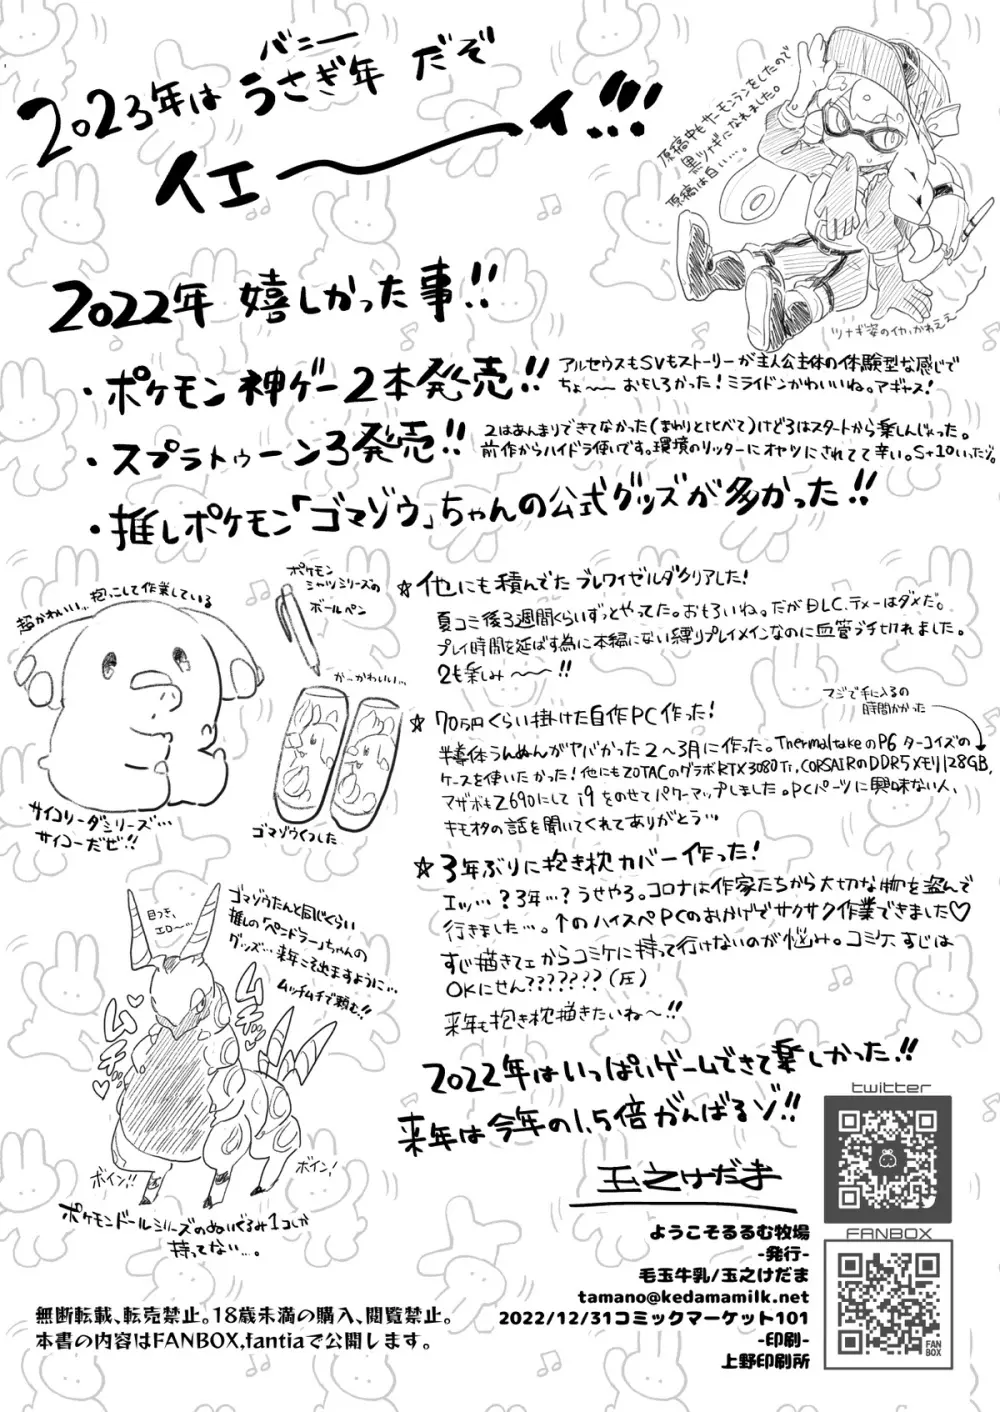 バニー
2023年は うさぎ年 だぞ
イエーーーイ!!!
原稿中もサーモンランをしたので
黒ツナギになれました。
原稿は白い…。
ツナギ姿のイカ、かわええ
2022年 嬉しかった事!!
・ポケモン神ゲー2本発売!!
アルセウスもSVもストーリーが主人公主体の体験型な感じで
ちょ〜〜おもしろかった!ミライドンかわいいね。アギャス!
・スプラトゥーン3発売!!
2はあんまりできてなかった(まわりと比べて)けど3はスタートから楽しんじゃった。
前作からハイドラ使いです。環境のリッターにオヤツにされてて辛い。S+10いったゾ。
・推しポケモン「ゴマゾウ」ちゃんの公式グッズが多かった!!
超かわいい…抱っこして作業している
サイコソーダシリーズ…
サイコーだぜ!!
ポケモン
シャツシリーズの
ボールペン
かーかわいい…
ゴマゾウくつした
☆他にも積んでたブレワイゼルダクリアした!
夏コミ後3週間くらいずっとやってた。おもろいね。だがDLC、テメーはダメだ。
プレイ時間を延ばす為に本編にない縛りプレイメインなのに血管ブチ切れました。
2も楽しみ〜〜!!
☆70万円くらい掛けた自作PC作った!
マジで手に入るの
時間かかった
半導体うんぬんがヤバかった2〜3月に作った。ThermaltakeのP6 ターコイズの
ケースを使いたかった!他にもZOTACのグラボRTX3080Ti,CORSAIRのDDR5メモリ128GB,
マザボもZ690にして i9 をのせてパワーマップしました。PCパーツに興味ない人、
キモオタの話を聞いてくれてありがとう…
☆3年ぶりに抱き枕カバー作った!
エッ…?3年…?うせやろ。コロナは作家たちから大切な物を盗んで
行きました…。↑のハイスペPCのおかげでサクサク作業できました♡
すじ描きてェからコミケに持って行けないのが悩み。コミケ、すじは
OKにせん???????(圧)
来年も抱き枕描きたいね〜!!
ゴマゾウたんと同じくらい
推しの「ペンドラー」ちゃんの
グッズ…来年こそ出ますように…
ムッチムチで頼む!!
目つき、
エロ〜…
ムチ♡
ムチ…♡
ボイン!!
ボイン!
ポケモンドールシリーズのぬいぐるみ1コしか
持ってない…。
2022年はいっぱいゲームできて楽しかった!!
来年は今年の1.5倍がんばるゾ!!
玉之けだま
twitter
FANBOX
FAN
BOX
ようこそるるむ牧場
-発行-
毛玉牛乳/玉之けだま
tamano@kedamamilk.net
2022/12/31コミックマーケット101
-印刷-
上野印刷所
無断転載、転売禁止。18歳未満の購入、閲覧禁止。
本書の内容はFANBOX,fantiaで公開します。